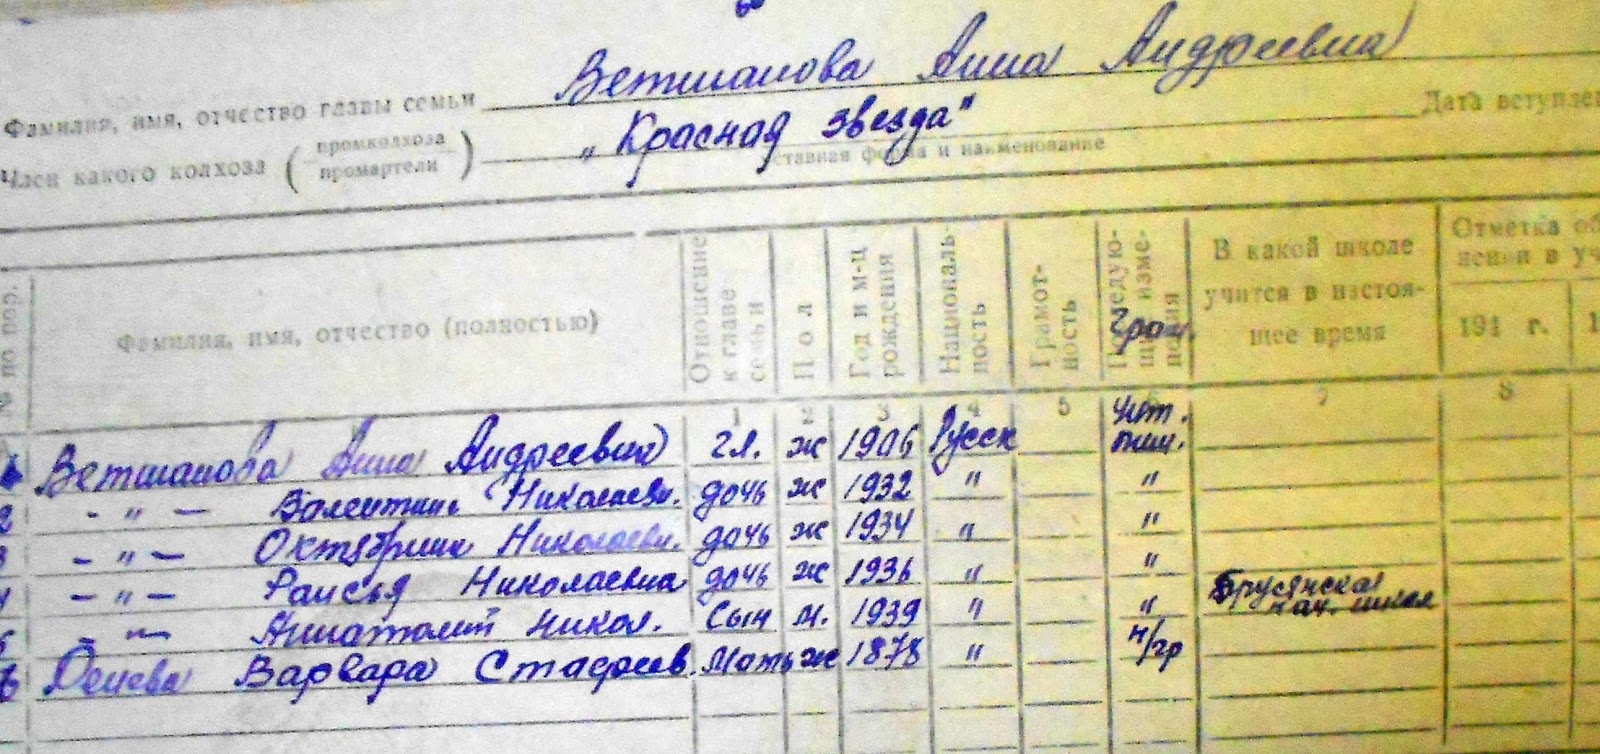 Фамилия, имя, отчество главы семьи Ветшанова Анна Андреевна
Член какого колхоза (промколхоза промартели) „Красная звезда" Дата вступлен
ставная форма и наименование
№ по пор.
Фамилия, имя, отчество (полностью)
Отношение к главе семьи
Пол
Год и м-ц рождения
Националь-ность
Грамот-ность
Последую-щие изме-нения
Грам.
В какой школе учится в настоя-щее время
Отметка об
нении в уч
191 г. 1
1 2 3 4 5 6 7 8
Ветшанова Анна Андреевна гл. ж 1906 Русск чит. пиш.
2 - " - Валентина Николаевн. дочь ж 1932 " "
3 - " - Октябрина Николаевн. дочь ж 1934 " "
4 - " - Раисья Николаевна дочь ж 1936 " "
5 - " - Анатолий Никол. сын м. 1939 " " Брусянская нач. школ
6 Варвара мать ж 1878 " н/гр